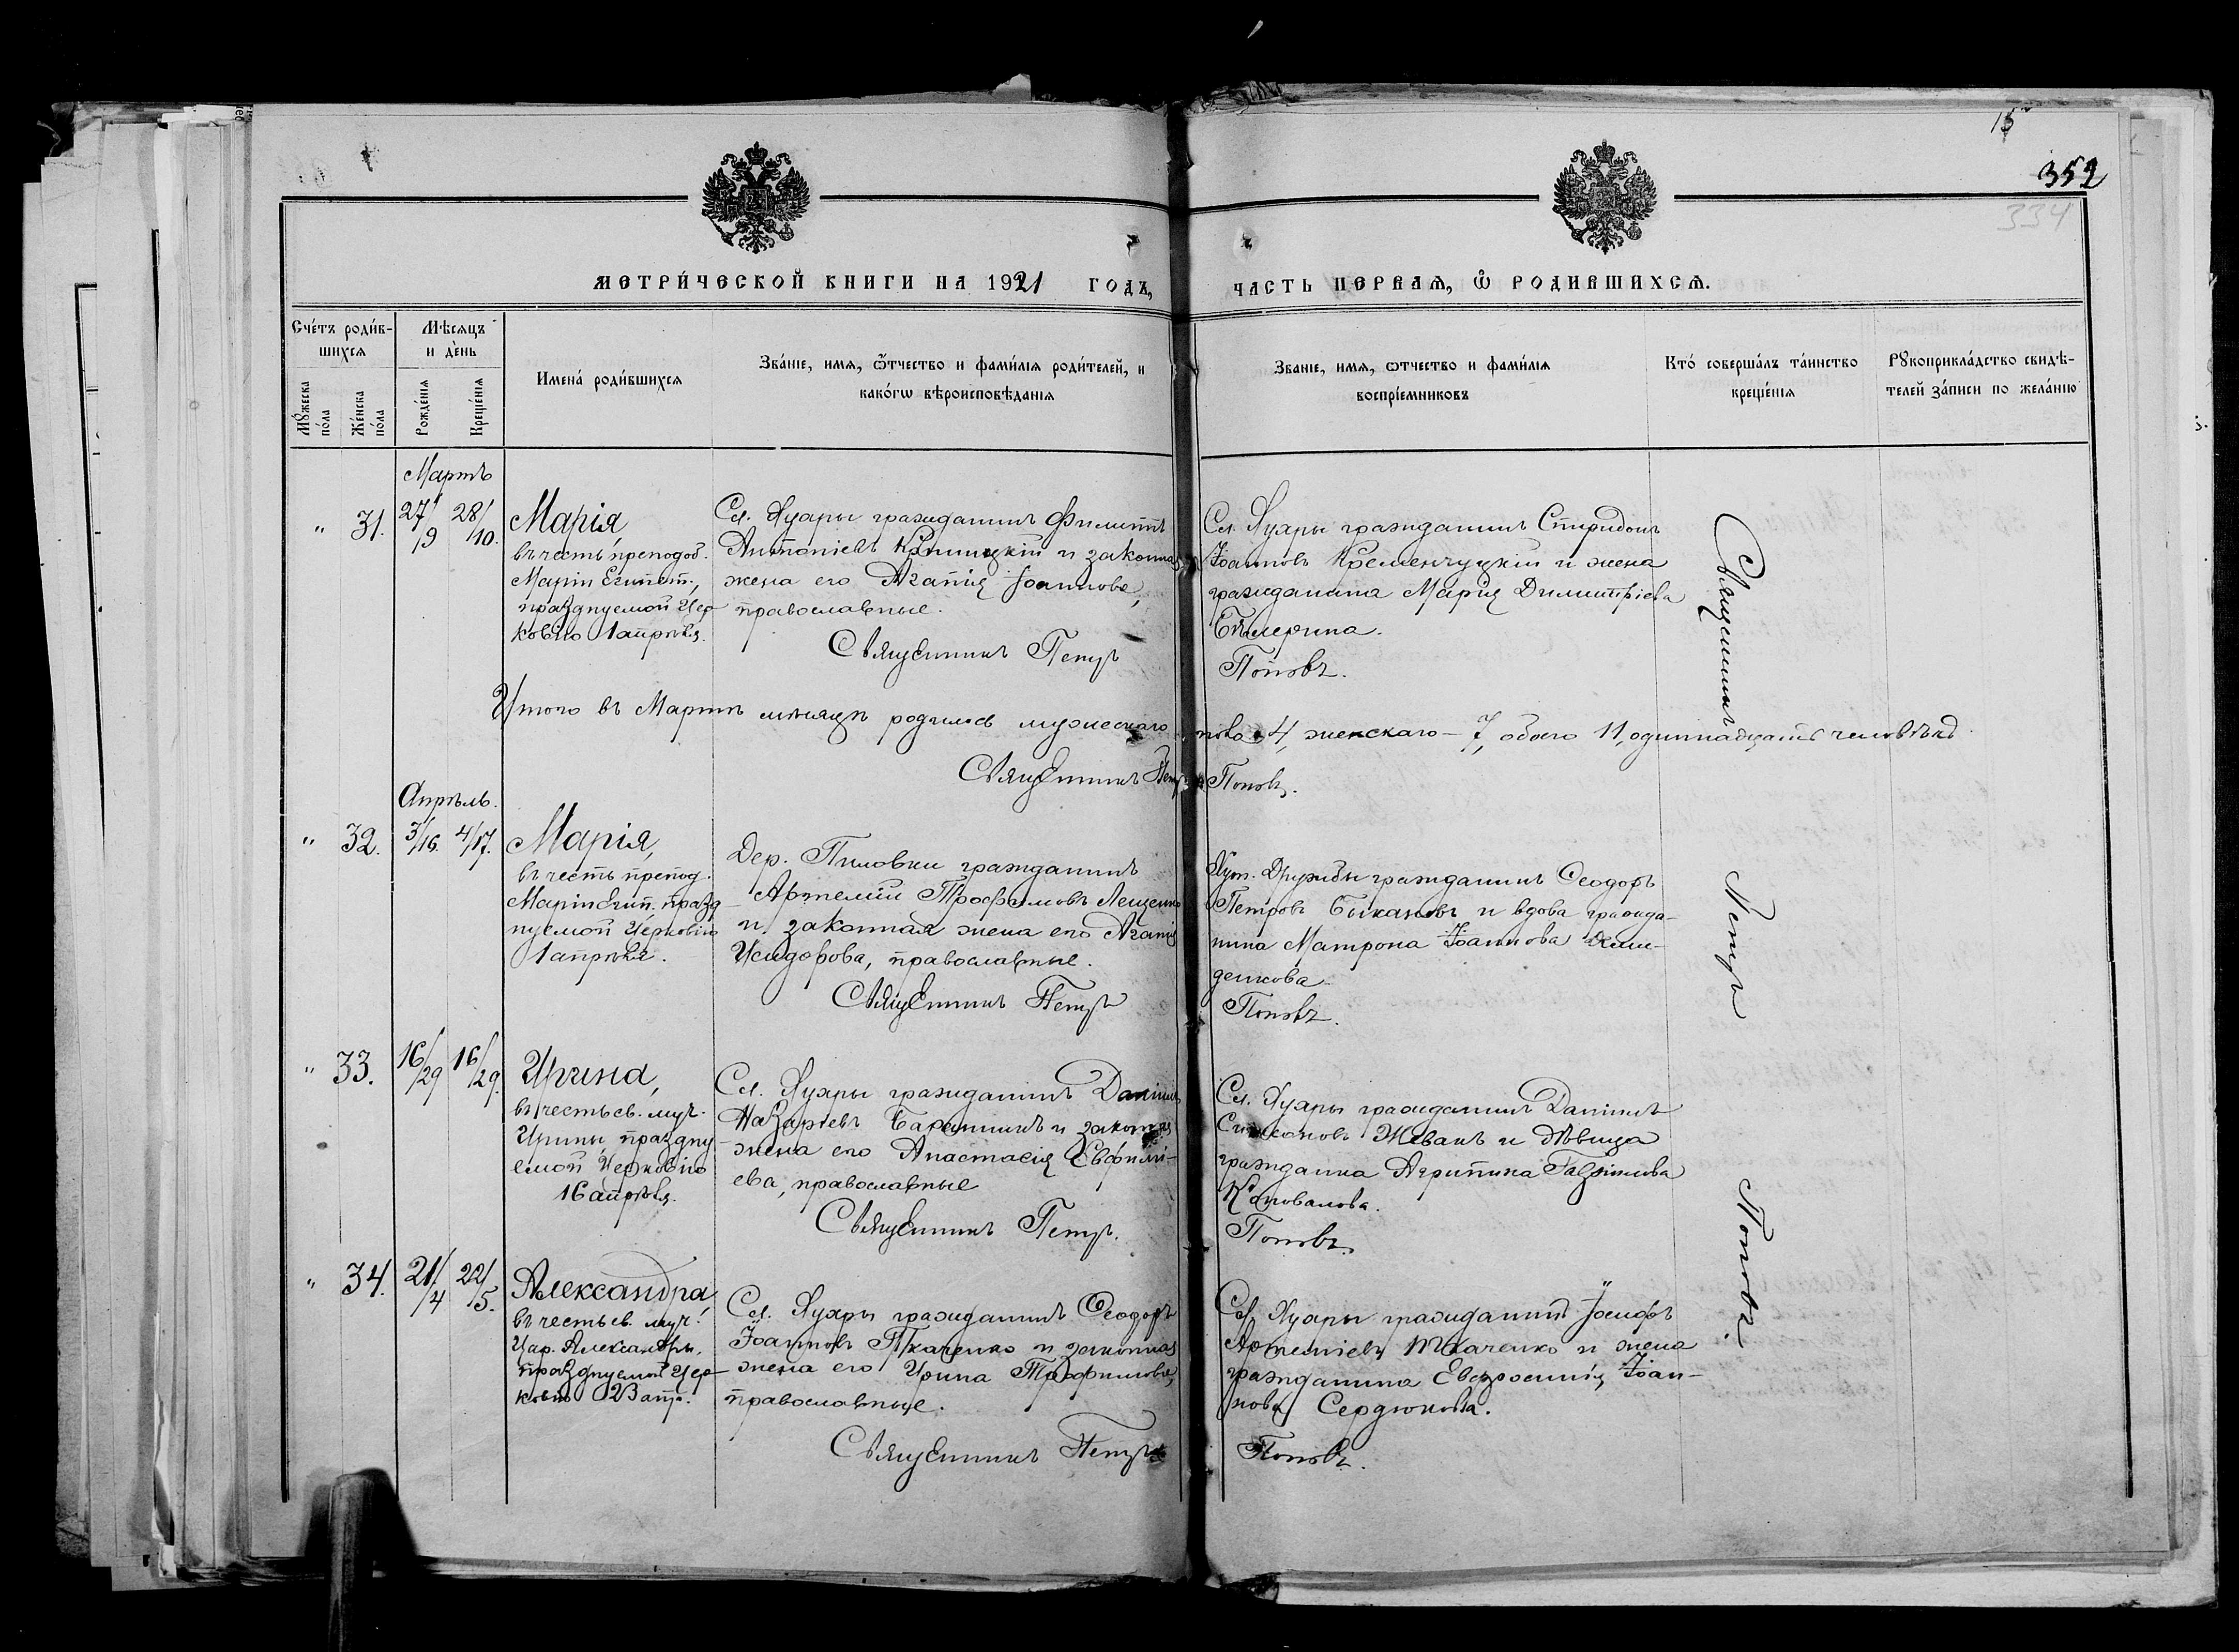 15
352
334
МЕТРИ́ЧЕСКОЙ КНИГИ НА 1921 ГОДЪ,
ЧАСТЬ ПЕРВАѦ, Ѽ РОДИВШИХСѦ.
Сче́тъ роди́в-
шихсѧ
Мꙋ́жеска по́ла
Же́нска по́ла
Мѣ́сѧцъ и де́нь
Рожде́нїѧ
Креще́нїѧ
Имена́ роди́вшихсѧ
Зва́нїе, имѧ, ѽтчество и фами́лїѧ роди́телей, и
како́гѡ вѣроисповѣ́данїѧ
Званїе, имѧ, ѡтчество и фами́лїѧ
воспрїе́мниковъ
Кто́ соверша́лъ та́инство
креще́нїѧ
Рꙋкоприкла́дство свидѣ́-
телей за́писи по жела́нїю
Мартъ
" 31. 27/9 28/10.
Марія,
въ честь преподоб.
Маріи Египет.,
празднуемой Цер-
ковію 1 апрѣля.
Сл. Яуары гражданинъ Филиппъ
Антоніевъ и законная
жена его Агапія Іоаннова,
православные.
Священникъ Петръ
Сл. гражданинъ Спиридонъ
Іоанновъ Кременчуцкій и жена
гражданина Марія Димитріева
Попов.
Итого въ Мартѣ мѣсяцѣ родилось мужескаго пола 4, женскаго – 7, обоего 11, одиннадцать человѣкъ
Священникъ Петръ Поповъ.
Апрѣль.
" 32. 3/16. 4/17.
Марія,
въ честь препод.
Маріи Егип. празд-
нуемой Церковію
1 апрѣля.
Дер. гражданинъ
Артемій Трофимовъ Лещенко
и законная жена его Агапія
Исидорова, православные.
Священникъ Петръ
Хут. Дружбы гражданинъ Ѳеодоръ
Петровъ Быкановъ и вдова гражда-
нина Матрона Іоаннова Деми-
денкова
Поповъ.
" 33. 16/29 16/29.
Ирина,
въ честь св. муч.
Ирины, праздну-
емой Церковію
16 апрѣля.
Сл. гражданинъ Даніилъ
Назаріевъ и законная
жена его Анастасія Евфимі-
ева, православные
Священникъ Петръ.
Сл. гражданинъ Даніилъ
Симеоновъ Жеванъ и дѣвица
гражданка Агрипина
Коновалова.
Поповъ.
" 34. 21/4 22/5.
Александра,
въ честь св. муч.
Цар. Александры,
празднуемой Цер-
ковію 23 апр.
Сл. гражданинъ Ѳеодоръ
Іоанновъ Ткаченко и законная
жена его Ирина Трофимова,
православные.
Священникъ Петръ
Сл. гражданинъ Іосифъ
Артеміевъ Ткаченко и жена
гражданина Евфросинія Іоан-
нова Сердюкова.
Поповъ.
Священникъ Петръ Поповъ.